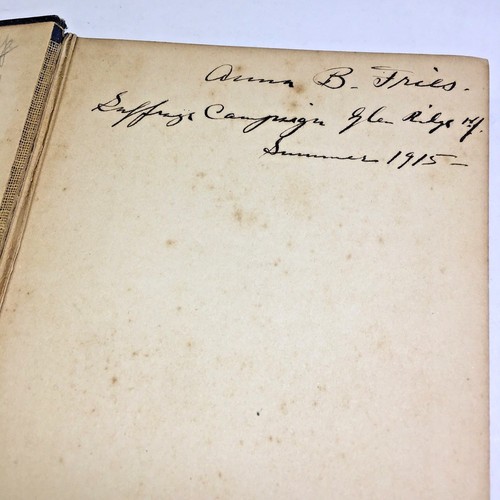 Anna B. Fries.
Suffrage Campaign Glen Ridge N.J.
Summer 1915 —